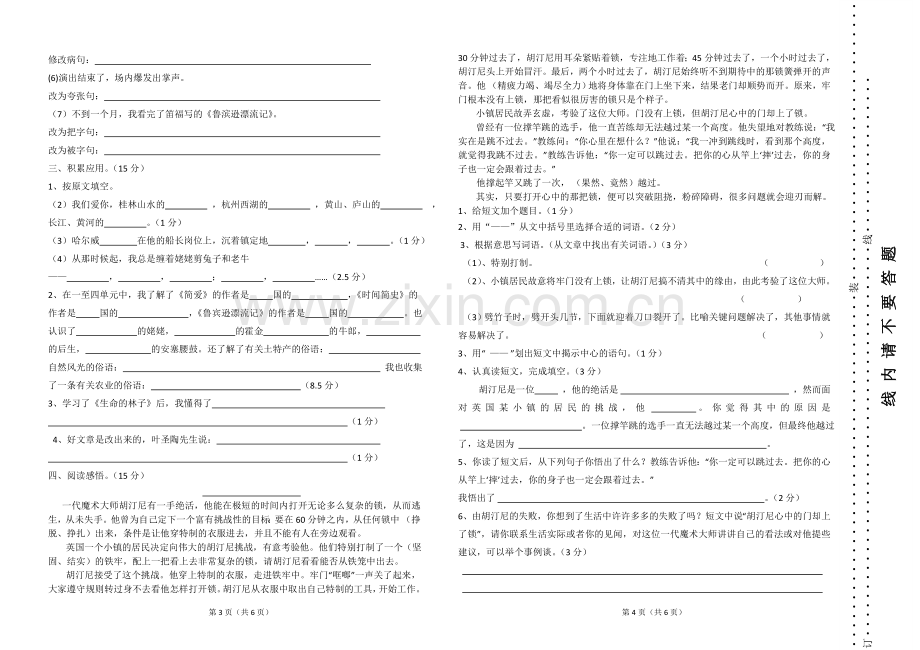 修改病句：
(6)演出结束了，场内爆发出掌声。
改为夸张句：
（7）不到一个月，我看完了笛福写的《鲁滨逊漂流记》。
改为把字句：
改为被字句：
三、积累应用。（15 分）
1、按原文填空。
（2）我们爱你，桂林山水的________ ，杭州西湖的________ ，黄山、庐山的________ ，
长江、黄河的________。（1 分）
（3）哈尔威________在他的船长岗位上，沉着镇定地________，________，________。（1 分）
（4）从那时候起，我总是缠着姥姥剪兔子和老牛
——________，________，________；________，________……（2.5 分）
2、在一至四单元中，我了解了《简爱》的作者是____国的____________，《时间简史》的
作者是____国的__________，《鲁宾逊漂流记》的作者是____国的__________。也
认识了____________的姥姥，____________的霍金____________的牛郎，____________
的后生，____________的安塞腰鼓。还了解了有关土特产的俗语：____________________
自然风光的俗语：________________________________________ 我也收集
了一条有关农业的俗语：______________________________（8.5 分）
3、学习了《生命的林子》后，我懂得了______________________________
____________________________________________________________（1 分）
4、好文章是改出来的，叶圣陶先生说：______________________________
____________________________________________________________（1 分）
四、阅读感悟。（15 分）
一代魔术大师胡汀尼有一手绝活，他能在极短的时间内打开无论多么复杂的锁，从而逃
生，从未失手。他曾为自己定下一个富有挑战性的目标：要在 60 分钟之内，从任何锁中（挣
脱、挣扎）出来，条件是让他穿特制的衣服进去，并且不能有人在旁边观看。
英国一个小镇的居民决定向伟大的胡汀尼挑战，有意考验他。他们特别打制了一个（坚
固、结实）的铁牢，配上一把看上去非常复杂的锁，请胡汀尼看看能否从铁笼中出去。
胡汀尼接受了这个挑战。他穿上特制的衣服，走进铁牢中。牢门“哐啷”一声关了起来，
大家遵守规则转过身不去看他怎样打开锁。胡汀尼从衣服中取出自己特制的工具，开始工作。
第 3 页（共 6 页）
30 分钟过去了，胡汀尼用耳朵紧贴着锁，专注地工作着；45 分钟过去了，一个小时过去了，
胡汀尼头上开始冒汗。最后，两个小时过去了，胡汀尼始终听不到期待中的那锁簧弹开的声
音。他（精疲力竭、竭尽全力）地将身体靠在门上坐下来，结果老门却顺势而开。原来，牢
门根本没有上锁，那把看似很厉害的锁只是个样子。
小镇居民故弄玄虚，考验了这位大师。门没有上锁，但胡汀尼心中的门却上了锁。
曾经有一位撑竿跳的选手，他一直苦练却无法越过某一个高度。他失望地对教练说：“我
实在是跳不过去。”教练问：“你心里在想什么？”他说：“我一冲到跳线时，看到那个高度，
就觉得我跳不过去。”教练告诉他：“你一定可以跳过去。把你的心从竿上‘摔’过去，你的身
子也一定会跟着过去。”
他撑起竿又跳了一次，（果然、竟然）越过。
其实，只要打开心中的那把锁，便可以突破阻挠，粉碎障碍，很多问题就会迎刃而解。
1、给短文加个题目。（1 分）
2、用“——”从文中括号里选择合适的词语。（2 分）
3、根据意思写词语。（从文章中找出有关词语。）（3 分）
（1）、特别打制。（ ）
（2）、小镇居民故意将牢门没有上锁，让胡汀尼搞不清其中的缘由，由此考验了这位大师。
（ ）
（3）劈竹子时，劈开头几节，下面就迎着刀口裂开了。比喻关键问题解决了，其他事情就
容易解决了。（ ）
3、用“ ——”划出短文中揭示中心的语句。（1 分）
4、认真读短文，完成填空。（3 分）
胡汀尼是一位_____ ，他的绝活是______________________________ ，然而面
对英国某小镇的居民的挑战，他 ________。你觉得其中的原因是
____________________。一位撑竿跳的选手一直无法越过某一个高度，但最终他越过
了，这是因为 ________________________________________。
5、你读了短文后，从下列句子你悟出了什么？教练告诉他：“你一定可以跳过去。把你的心
从竿上‘摔’过去，你的身子也一定会跟着过去。”
我悟出了 __________________________________________________。（2 分）
6、由胡汀尼的失败，你想到了生活中许许多多的失败了吗？短文中说“胡汀尼心中的门却上
了锁”，请你联系生活实际或者你的见闻，对这位一代魔术大师讲讲自己的看法或对他提些
建议，可以举个事例谈。（3 分）
第 4 页（共 6 页）
线 内 请 不 要 答 题
线
装
订
www.zixin.com.cn